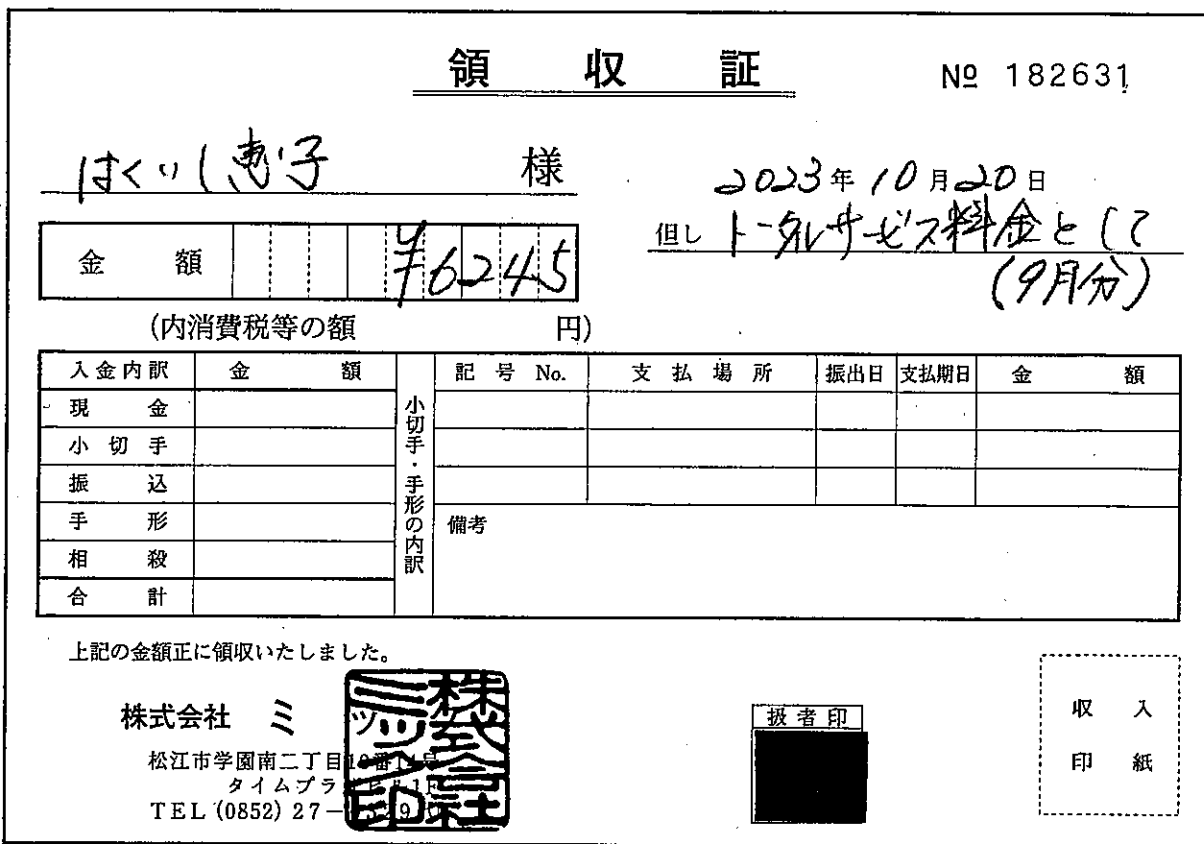 領収証
№ 182631
はくいし恵子 様
2023年10月20日
但し トータルサービス料金として
(9月分)
金額 ¥6245
(内消費税等の額 円)
入金内訳 金額
現金
小切手
振込
手形
相殺
合計
小切手・手形の内訳
記号No. 支払場所 振出日 支払期日 金額
備考
上記の金額正に領収いたしました。
株式会社 ミツ
松江市学園南二丁目
タイムプラ
TEL (0852) 27-
株式会社ミツ
扱者印
収入
印紙